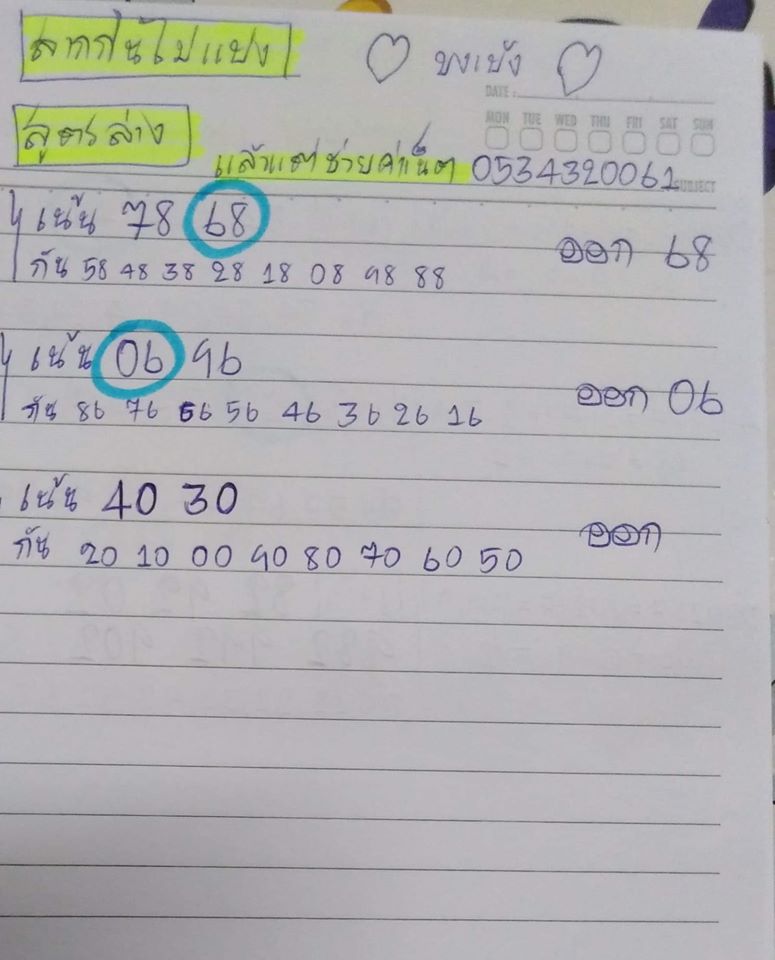 ลากกินไปแปง ♡ บงเบ้ง ♡
DATE :
MON TUE WED THU FRI SAT SUN
สูตรล่าง
แล้วแต่ช่วยค่าเน็ต 0534320061
SUBJECT
เน้น 78 68 ออก 68
กัน 58 48 38 28 18 08 98 88
เน้น 06 96
กัน 86 76 66 56 46 36 26 16 ออก 06
เน้น 40 30
กัน 20 10 00 90 80 70 60 50 ออก